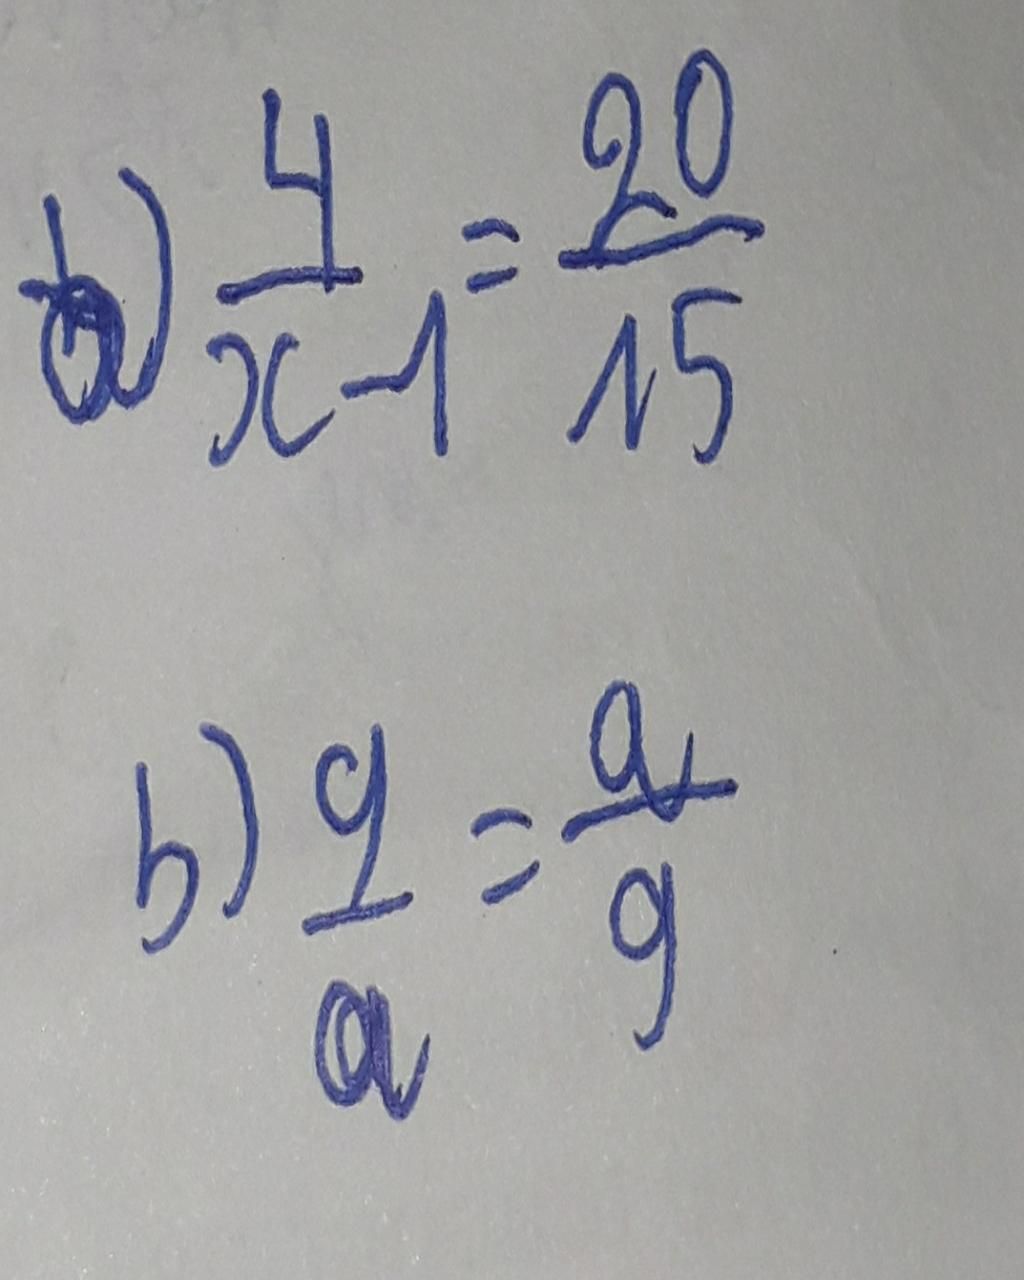 a) 4/(x-1) = 20/15
b) 9/a = a/9